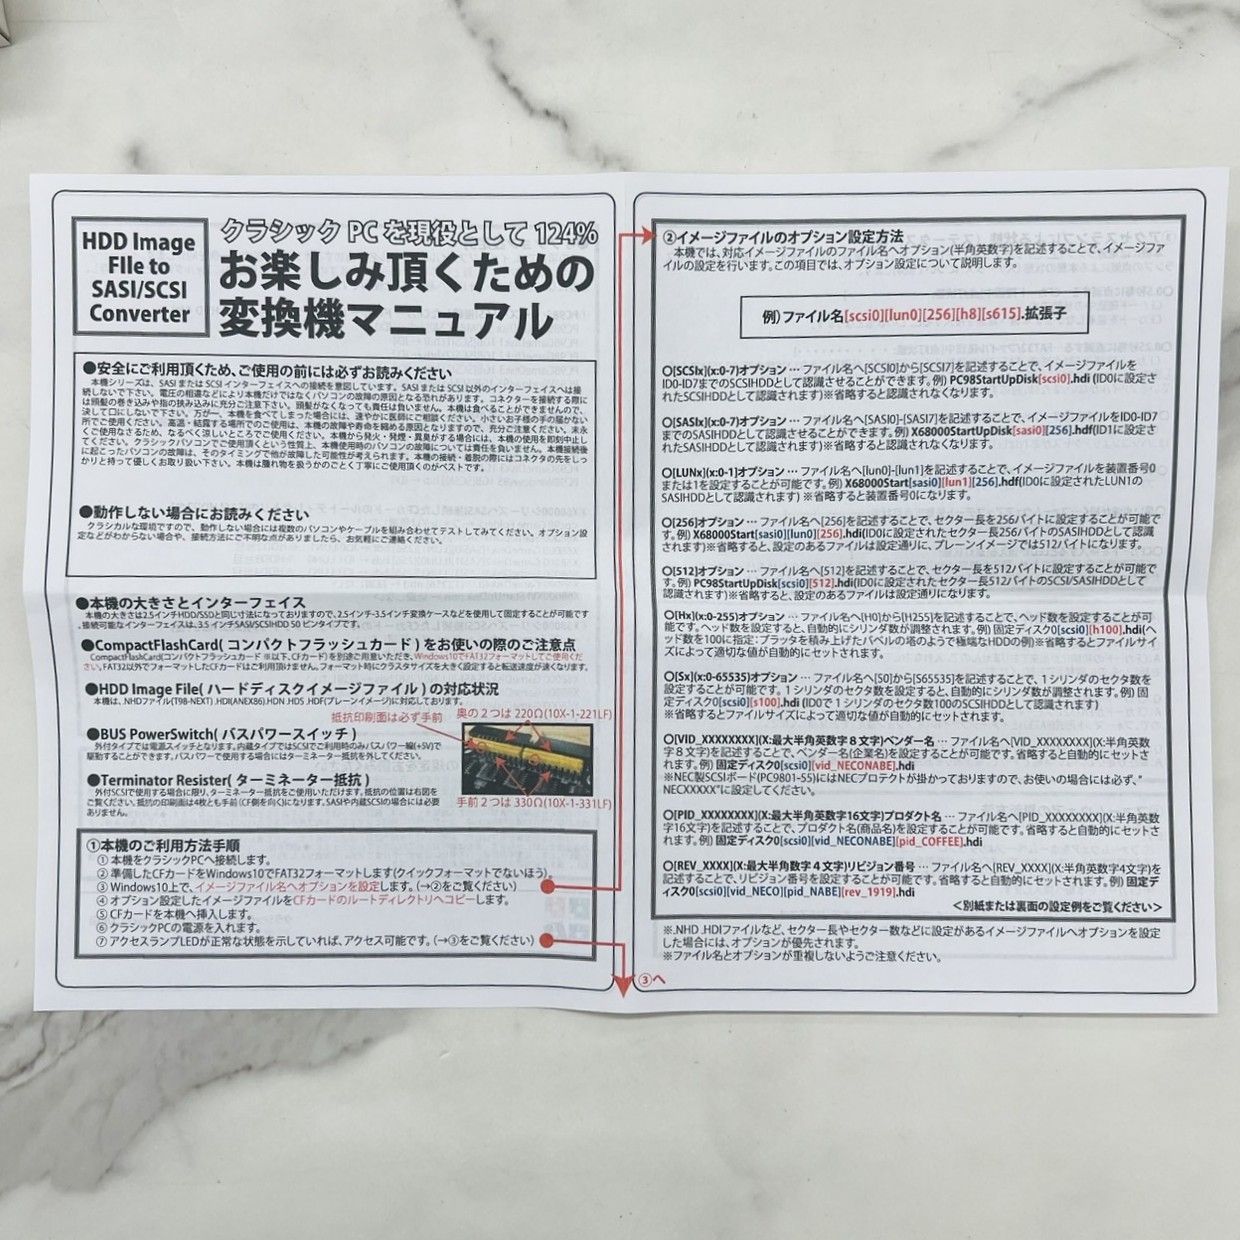 HDD Image
FIle to
SASI/SCSI
Converter
クラシック PC を現役として 124%
お楽しみ頂くための
変換機マニュアル
●安全にご利用頂くため、ご使用の前には必ずお読みください
本機シリーズは、SASI または SCSI インターフェイスへの接続を意図しています。SASI または SCSI 以外のインターフェイスへは接
続しないで下さい。電圧の相違などにより本機だけではなくパソコンの故障の原因となる恐れがあります。コネクターを接続する際に
は頭髪の巻き込みや指の挟み込みに充分ご注意下さい。頭髪がなくなっても責任は負いません。本機は食べることができませんので、
決して口にしないで下さい。万が一、本機を食べてしまった場合には、速やかに医師にご相談ください。小さいお子様の手の届かない
所でご使用ください。高温・結露する場所でのご使用は、本機の故障や寿命を縮める原因となりますので、充分ご注意ください。末永
くご使用なさるため、なるべく涼しいところでご使用ください。本機から発火・発煙・異臭がする場合には、本機の使用を即刻中止し
てください。クラシックパソコンでご使用頂くという性質上、本機使用時のパソコンの故障については責任を負いません。本機接続後
に起こったパソコンの故障は、そのタイミングで他が故障した可能性が考えられます。本機の接続・着脱の際にはコネクタの先をしっ
かりと持って優しくお取り扱い下さい。本機は腫れ物を扱うかのごとく丁寧にご使用頂くのがベストです。
●動作しない場合にお読みください
クラシカルな環境ですので、動作しない場合には複数のパソコンやケーブルを組み合わせてテストしてみてください。オプション設
定などがわからない場合や、接続方法にご不明な点がありましたら、お気軽にご連絡ください。
●本機の大きさとインターフェイス
本機の大きさは2.5インチHDD/SSDと同じ寸法になっておりますので、2.5インチ-3.5インチ変換ケースなどを使用して固定することが可能です
。接続可能なインターフェイスは、3.5インチSASI/SCSIHDD 50ピンタイプです。
●CompactFlashCard( コンパクトフラッシュカード ) をお使いの際のご注意点
CompactFlashCard(コンパクトフラッシュカード ※以下、CFカード)を別途ご用意いただき、Windows10でFAT32フォーマットしてご使用くだ
さい。FAT32以外でフォーマットしたCFカードはご利用頂けません。フォーマット時にクラスタサイズを大きく設定すると転送速度が速くなります。
●HDD Image File( ハードディスクイメージファイル ) の対応状況
本機は、.NHDファイル(T98-NEXT) .HDI(ANEX86).HDN .HDS .HDF(プレーンイメージ)に対応しております。
抵抗印刷面は必ず手前
奥の２つは 220Ω(10X-1-221LF)
●BUS PowerSwitch( バスパワースイッチ )
外付タイプでは電源スイッチとなります。内蔵タイプではSCSIでご利用時のみバスパワー線(+5V)で
駆動することができます。バスパワーで使用する場合にはターミネーター抵抗を外してください。
●Terminator Resister( ターミネーター抵抗 )
外付SCSIで使用する場合に限り、ターミネーター抵抗をご使用いただけます。抵抗の位置は右図を
ご覧ください。抵抗の印刷面は4枚とも手前(CF側を向く)になります。SASIや内蔵SCSIの場合には必要
ありません。
手前２つは 330Ω(10X-1-331LF)
①本機のご利用方法手順
① 本機をクラシックPCへ接続します。
② 準備したCFカードをWindows10でFAT32フォーマットします(クイックフォーマットでないほう)。
③ Windows10上で、イメージファイル名へオプションを設定します。(→②をご覧ください)
④ オプション設定したイメージファイルをCFカードのルートディレクトリへコピーします。
⑤ CFカードを本機へ挿入します。
⑥ クラシックPCの電源を入れます。
⑦ アクセスランプLEDが正常な状態を示していれば、アクセス可能です。(→③をご覧ください)
③へ
②イメージファイルのオプション設定方法
本機では、対応イメージファイルのファイル名へオプション(半角英数字)を記述することで、イメージファ
イルの設定を行います。この項目では、オプション設定について説明します。
例）ファイル名[scsi0][lun0][256][h8][s615].拡張子
○[SCSIx](x:0-7)オプション … ファイル名へ[SCSI0]から[SCSI7]を記述することで、イメージファイルを
ID0-ID7までのSCSIHDDとして認識させることができます。例) PC98StartUpDisk[scsi0].hdi (ID0に設定さ
れたSCSIHDDとして認識されます)※省略すると認識されなくなります。
○[SASIx](x:0-7)オプション … ファイル名へ[SASI0]-[SASI7]を記述することで、イメージファイルをID0-ID7
までのSASIHDDとして認識させることができます。例) X68000StartUpDisk[sasi0][256].hdf(ID1に設定さ
れたSASIHDDとして認識されます)※省略すると認識されなくなります。
○[LUNx](x:0-1)オプション … ファイル名へ[lun0]-[lun1]を記述することで、イメージファイルを装置番号0
または1を設定することが可能です。例) X68000Start[sasi0][lun1][256].hdf(ID0に設定されたLUN1の
SASIHDDとして認識されます) ※省略すると装置番号0になります。
○[256]オプション … ファイル名へ[256]を記述することで、セクター長を256バイトに設定することが可能で
す。例) X68000Start[sasi0][lun0][256].hdf(ID0に設定されたセクター長256バイトのSASIHDDとして認識
されます)※省略すると、設定のあるファイルは設定通りに、プレーンイメージでは512バイトになります。
○[512]オプション … ファイル名へ[512]を記述することで、セクター長を512バイトに設定することが可能で
す。例) PC98StartUpDisk[scsi0][512].hdi(ID0に設定されたセクター長512バイトのSCSI/SASIHDDとして
認識されます)※省略すると、設定のあるファイルは設定通りになります。
○[Hx](x:0-255)オプション … ファイル名へ[H0]から[H255]を記述することで、ヘッド数を設定することが可
能です。ヘッド数を設定すると、自動的にシリンダ数が調整されます。例) 固定ディスク0[scsi0][h100].hdi(ヘ
ッド数を100に指定:プラッタを積み上げたバベルの塔のようで極端なHDDの例)※省略するとファイルサイ
ズによって適切な値が自動的にセットされます。
○[Sx](x:0-65535)オプション … ファイル名へ[S0]から[S65535]を記述することで、１シリンダのセクタ数
を設定することが可能です。１シリンダのセクタ数を設定すると、自動的にシリンダ数が調整されます。例) 固
定ディスク0[scsi0][s100].hdi (ID0で１シリンダのセクタ数100のSCSIHDDとして認識されます)
※省略するとファイルサイズによって適切な値が自動的にセットされます。
○[VID_XXXXXXXX](X:最大半角英数字８文字)ベンダー名 … ファイル名へ[VID_XXXXXXXX](X:半角英数
字８文字)を記述することで、ベンダー名(企業名)を設定することが可能です。省略すると自動的にセットさ
れます。例) 固定ディスク0[scsi0][vid_NECONABE].hdi
※NEC製SCSIボード(PC9801-55)にはNECプロテクトが掛かっておりますので、お使いの場合には必ず、”
NECXXXXX”に設定してください。
○[PID_XXXXXXXX](X:最大半角英数字16文字)プロダクト名 … ファイル名へ[PID_XXXXXXXX](X:半角英数
字16文字)を記述することで、プロダクト名(商品名)を設定することが可能です。省略すると自動的にセットさ
れます。例) 固定ディスク0[scsi0][vid_NECONABE][pid_COFFEE].hdi
○[REV_XXXX](X:最大半角数字４文字)リビジョン番号 … ファイル名へ[REV_XXXX](X:半角英数字4文字)を
記述することで、リビジョン番号を設定することが可能です。省略すると自動的にセットされます。例) 固定デ
ィスク0[scsi0][vid_NECO][pid_NABE][rev_1919].hdi
＜別紙または裏面の設定例をご覧ください＞
※.NHD .HDIファイルなど、セクター長やセクター数などに設定があるイメージファイルへオプションを設定
した場合には、オプションが優先されます。
※ファイル名とオプションが重複しないようご注意ください。